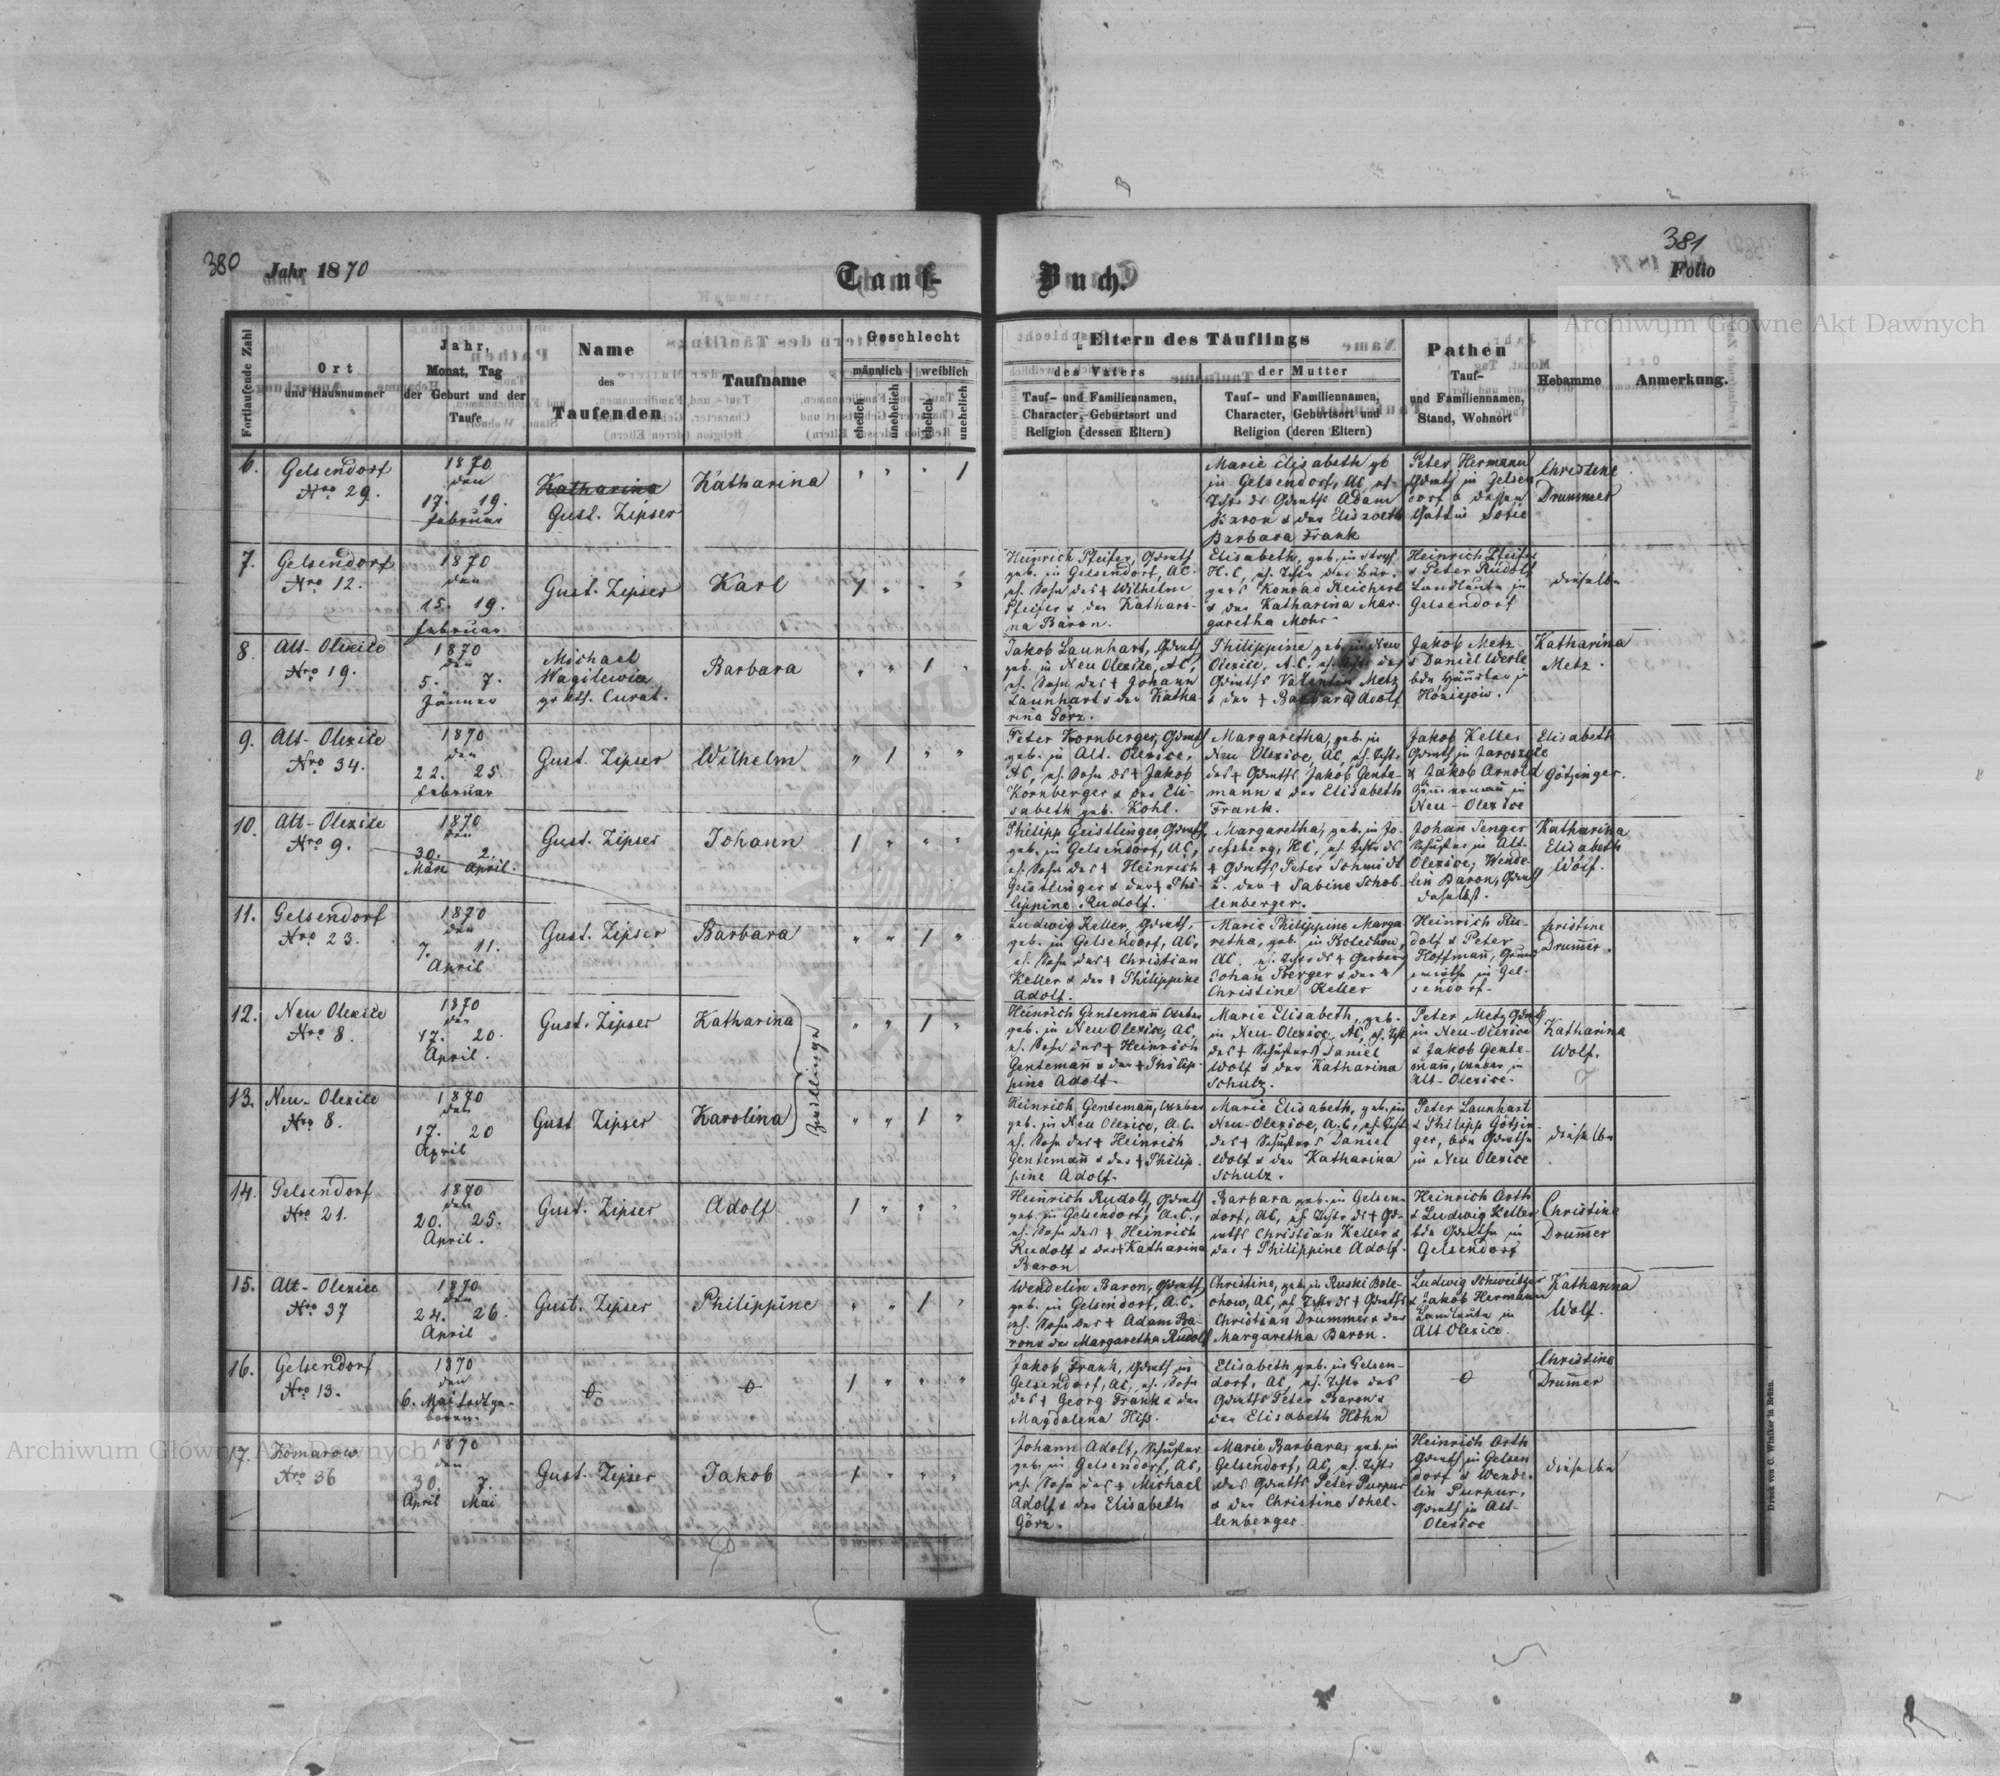 380
Jahr 1870
Tauf-
Buch.
381
Folio
Archiwum Główne Akt Dawnych
Fortlaufende Zahl
Ort
und Hausnummer
Jahr,
Monat, Tag
der Geburt und der
Taufe
Name
des
Taufenden
Taufname
Geschlecht
männlich
weiblich
ehelich
unehelich
ehelich
unehelich
Eltern des Täuflings
des Vaters
Tauf- und Familiennamen,
Character, Geburtsort und
Religion (dessen Eltern)
der Mutter
Tauf- und Familiennamen,
Character, Geburtsort und
Religion (deren Eltern)
Pathen
Tauf-
und Familiennamen,
Stand, Wohnort
Hebamme
Anmerkung.
6.
Gelsendorf
Nro 29.
1870
den
17. 19.
Februar
Katharina
Gust. Zipser
Katharina
Marie Elisabeth gb
in Gelsendorf, AC, eh.
Tchtr ds Gdwths Adam
Baron & der Elisabeth
Barbara Frank
Peter Hermann
Gdwth in Gelsen
dorf & dessen
Gattin Sofie
Christine
Drummer
7.
Gelsendorf
Nro 12.
1870
den
15. 19.
Februar
Gust. Zipser
Karl
Heinrich Pfeifer, Gdwth
geb. in Gelsendorf, AC.
eh. Sohn des † Wilhelm
Pfeifer & der Kathari-
na Baron.
Elisabeth, geb. in Stryj
H.C, eh. Tchtr des Bür-
gers Konrad Reichert
& der Katharina Mar-
garetha Mohr
Heinrich Pfeifer
& Peter Rudolf
Landleute in
Gelsendorf
dieselbe
8.
Alt-Olexice
Nro 19.
1870
den
5. 7.
Jänner
Michael
Wagilewia
gr kth. Curat.
Barbara
Jakob Launhart, Gdwth
geb. in Neu Olexice, AC,
eh. Sohn des † Johann
Launhart & der Katha-
rina Görz.
Philippine geb. in Neu
Olexice, A.C. eh. Tchtr des
Gdwths Valentin Metz
& der † Barbara Adolf
Jakob Metz
& Daniel Werle
bde Häusler in
Honiejow.
Katharina
Metz.
9.
Alt-Olexice
Nro 34.
1870
den
22. 25
Februar
Gust. Zipser
Wilhelm
Peter Kornberger, Gdwth
geb. in Alt. Olexice,
AC, eh. Sohn ds † Jakob
Kornberger & der Eli-
sabeth geb. Kohl.
Margaretha, geb. in
Neu Olexice, AC, eh. Tchtr
des † Gdwths Jakob Gente-
mann & der Elisabeth
Frank.
Jakob Keller
Gdwth in
& Jakob Arnold
Zimmermann in
Neu-Olexice
Elisabeth
Götzinger.
10.
Alt-Olexice
Nro 9.
1870
den
30. 2.
März April.
Gust. Zipser
Johann
Philipp Geistlinger, Gdwth,
geb. in Gelsendorf, AC,
eh. Sohn des † Heinrich
Geistlinger & der † Phi-
lippine Rudolf.
Margaretha, geb. in Jo-
sefsberg, HC, eh Tchtr ds
† Gdwths Peter Schmidt
& der † Sabine Schol-
lenberger.
Johan Senger
Schuster in Alt-
Olexice, Wende-
lin Baron, Gdwth
daselbst.
Katharina
Elisabeth
Wolf.
11.
Gelsendorf
Nro 23.
1870
den
7. 11.
April
Gust. Zipser
Barbara
Ludwig Keller, Gdwth,
geb. in Gelsendorf, AC,
eh. Sohn des † Christian
Keller & der † Philippine
Adolf.
Marie Philippine Marga
retha, geb. in Bolechow,
AC. eh. Tchtr ds † Gerbers
Johan Berger & der †
Christine Keller
Heinrich Ru-
dolf & Peter
Hoffmann, Grund
wirthe in Gel-
sendorf.
Christine
Drummer.
12.
Neu Olexice
Nro 8.
1870
den
17. 20.
April.
Gust. Zipser
Katharina
Zwillinge
Heinrich Gentemann Weber
geb. in Neu Olexice, AC,
eh. Sohn des † Heinrich
Gentemann & der † Philip-
pine Adolf.
Marie Elisabeth, geb.
in Neu-Olexice, AC, eh. Tcht
des † Schusters Daniel
Wolf & der Katharina
Schulz.
Peter Metz Gdwth
in Neu-Olexice
& Jakob Gente-
mann, Weber in
Alt-Olexice.
Katharina
Wolf.
13.
Neu-Olexice
Nro 8.
1870
den
17. 20
April
Gust Zipser
Karolina
Heinrich Gentemann, Weber
geb. in Neu Olexice, A.C.
eh. Sohn des † Heinrich
Gentemann & der † Philip-
pine Adolf.
Marie Elisabeth, geb. in
Neu-Olexice, A.C, eh. Tcht
des † Schusters Daniel
Wolf & der Katharina
Schulz.
Peter Launhart
& Philipp Götzin-
ger, bde Gdwthe
in Neu Olexice
dieselbe
14.
Gelsendorf
Nro 21.
1870
den
20. 25.
April.
Gust. Zipser
Adolf
Heinrich Rudolf, Gdwth
geb. in Gelsendorf, A.C.,
eh. Sohn des † Heinrich
Rudolf & der † Katharina
Baron
Barbara geb. in Gelsen-
dorf, AC, eh Tchtr ds † Gd-
wths Christian Keller &
der † Philippine Adolf.
Heinrich Orth
& Ludwig Keller
bde Gdwthe in
Gelsendorf
Christine
Drummer
15.
Alt-Olexice
Nro 37
1870
den
24. 26.
April
Gust. Zipser
Philippine
Wendelin Baron, Gdwth
geb. in Gelsendorf, A.C.
eh. Sohn des † Adam Ba-
ron & der Margaretha Rudolf
Christine, geb. in Ruski Bole-
chow, AC, eh Tchtr ds † Gdwths
Christian Drummer & der
Margaretha Baron.
Ludwig Schweitzer
& Jakob Hermann
Landleute in
Alt Olexice
Katharina
Wolf.
16.
Gelsendorf
Nro 13.
1870
den
6. Mai todtge-
boren.
0
0
Jakob Frank, Gdwth in
Gelsendorf, AC, eh. Sohn
des † Georg Frank & der
Magdalena Hiss.
Elisabeth geb. in Gelsen-
dorf, AC, eh. Tchtr des
Gdwths Peter Baron &
der Elisabeth Höhn
0
Christine
Drummer
17.
Komarow
Nro 36
1870
den
30. 7.
April Mai
Gust. Zipser
Jakob
Johann Adolf, Schuster
geb. in Gelsendorf, AC,
eh. Sohn des † Michael
Adolf & der Elisabeth
Görz.
Marie Barbara, geb. in
Gelsendorf, AC, eh. Tchtr
des Gdwths Peter Purpur
& der Christine Schel-
lenberger
Heinrich Orth
Gdwth in Gelsen
dorf & Wende-
lin Purpur,
Gdwth in Alt-
Olexice
dieselbe
Druck von C. Winiker in Brünn.
Archiwum Główne Akt Dawnych